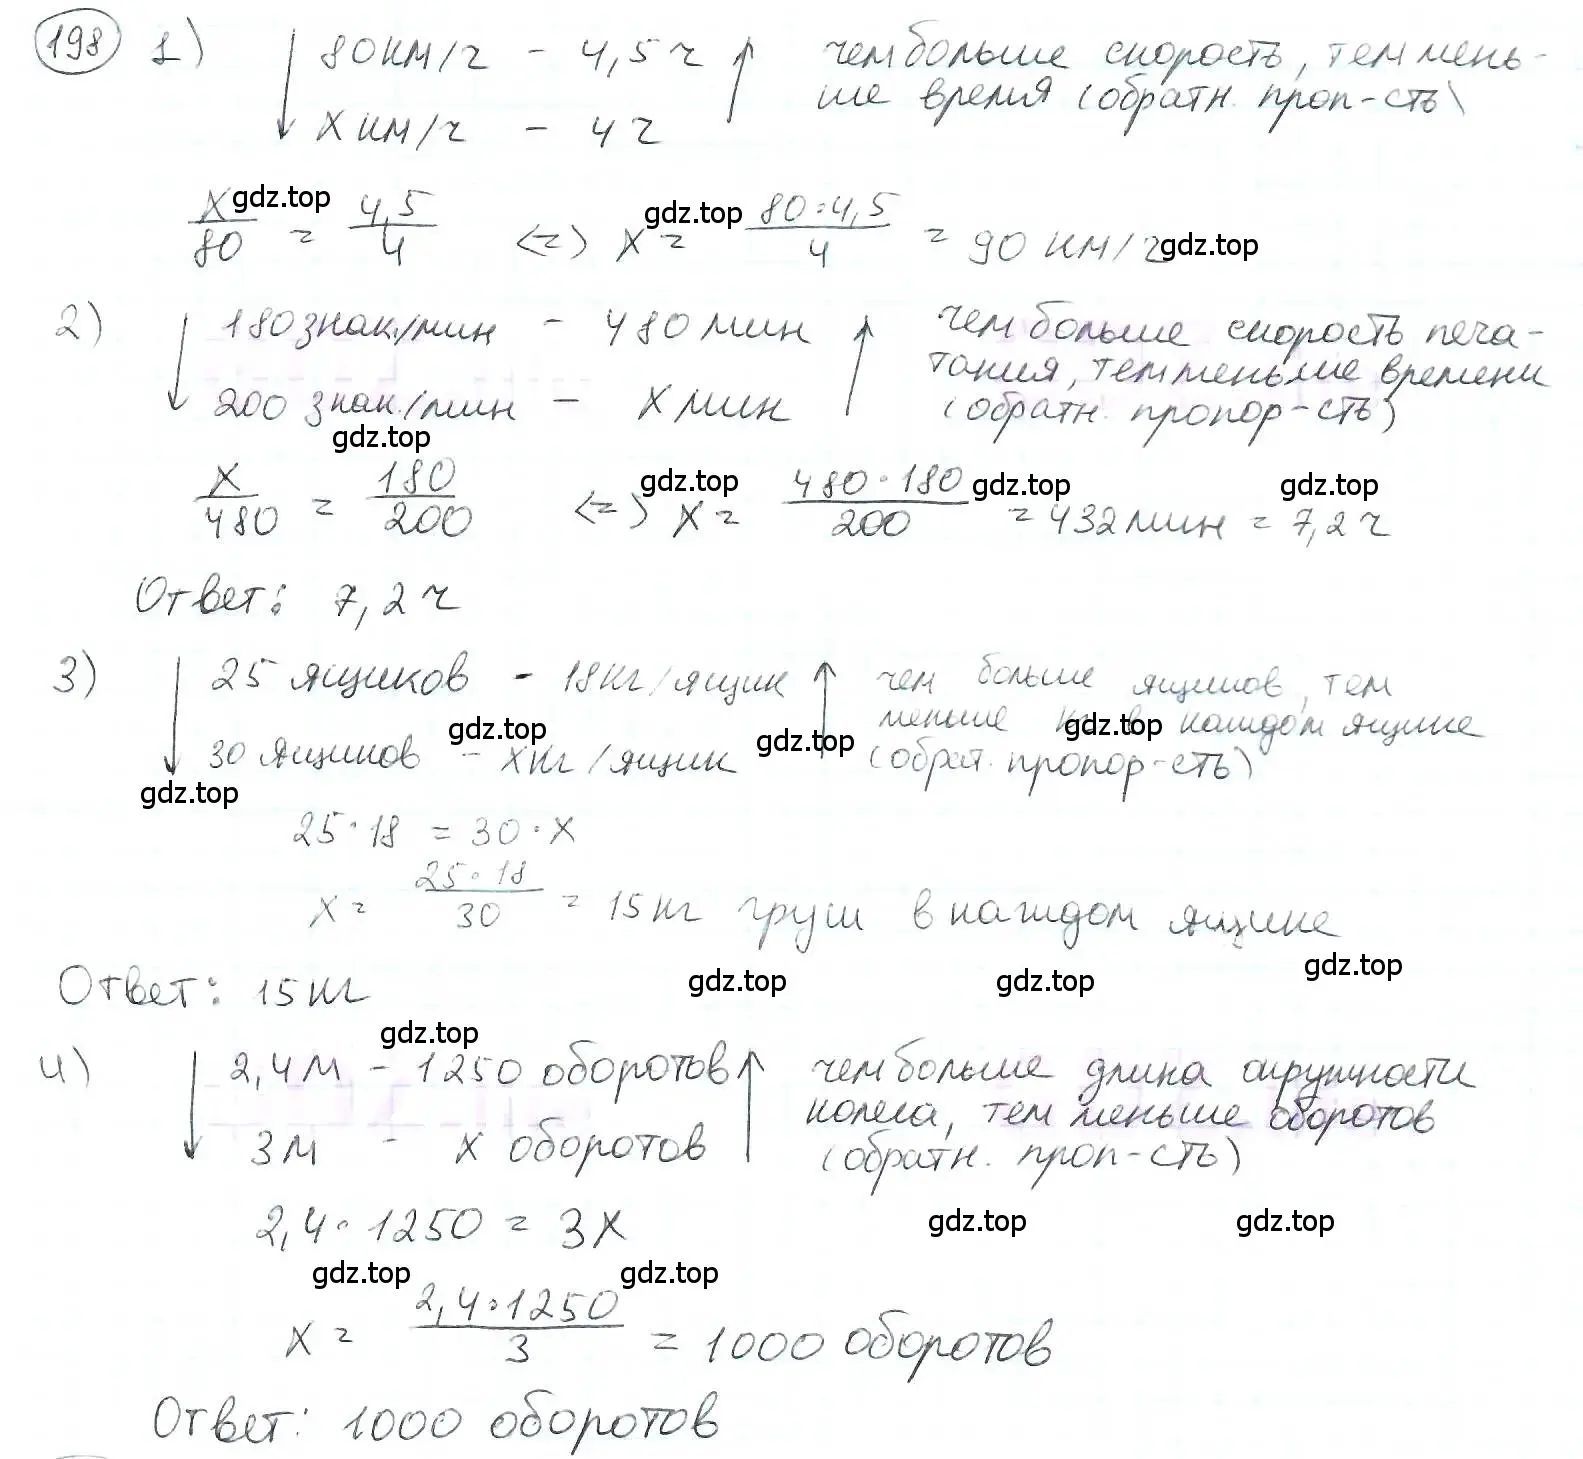 198 1) 80 км/ч - 4,5 ч чем больше скорость, тем мень-
х км/ч - 4 ч ше время (обратн. проп-сть)
х/80 = 4,5/4 <=> х = 80·4,5/4 = 90 км/ч
gdz.top gdz.top gdz.top
2) 180 знак./мин - 480 мин чем больше скорость печа-
тания, тем меньше времени
200 знак./мин - х мин (обратн. пропор-сть)
gdz.top
х/480 = 180/200 <=> х = 480·180/200 = 432 мин = 7,2 ч
gdz.top gdz.top gdz.top
Ответ: 7,2 ч
3) 25 ящиков - 18 кг/ящик чем больше ящиков, тем
меньше кг в каждом ящике
gdz.top gdz.top gdz.top
30 ящиков - х кг/ящик (обрат. пропор-сть)
gdz.top
25·18 = 30·х
х = 25·18/30 = 15 кг груш в каждом ящике
gdz.top gdz.top gdz.top
Ответ: 15 кг
gdz.top
4) 2,4 м - 1250 оборотов чем больше длина окружности
колеса, тем меньше оборотов
3 м - х оборотов (обратн. проп-сть)
2,4·1250 = 3х
gdz.top gdz.top
gdz.top gdz.top
х = 2,4·1250/3 = 1000 оборотов
Ответ: 1000 оборотов